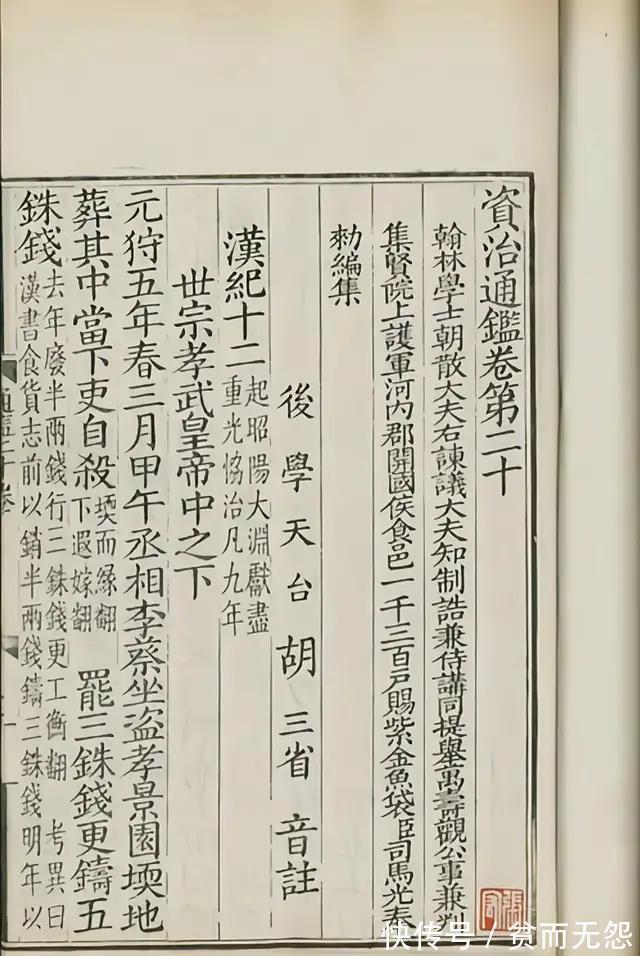 資治通鑑卷第二十
翰林學士朝散大夫右諫議大夫知制誥兼侍講同提舉萬壽觀公事兼判
集賢院上護軍河內郡開國侯食邑一千三百戶賜紫金魚袋臣司馬光奉
勑編集
後學天台胡三省音註
漢紀十二 起昭陽大淵獻盡
重光恊洽凡九年
世宗孝武皇帝中之下
元狩五年春三月甲午丞相李蔡坐盜孝景園堧地
葬其中當下吏自殺 堧而緣翻
下遐嫁翻 罷三銖錢更鑄五
銖錢 去年廢半兩錢行三銖錢更工衡翻 考異曰
漢書食貨志前以銷半兩錢鑄三銖錢明年以
快传号 / 贫而无怨